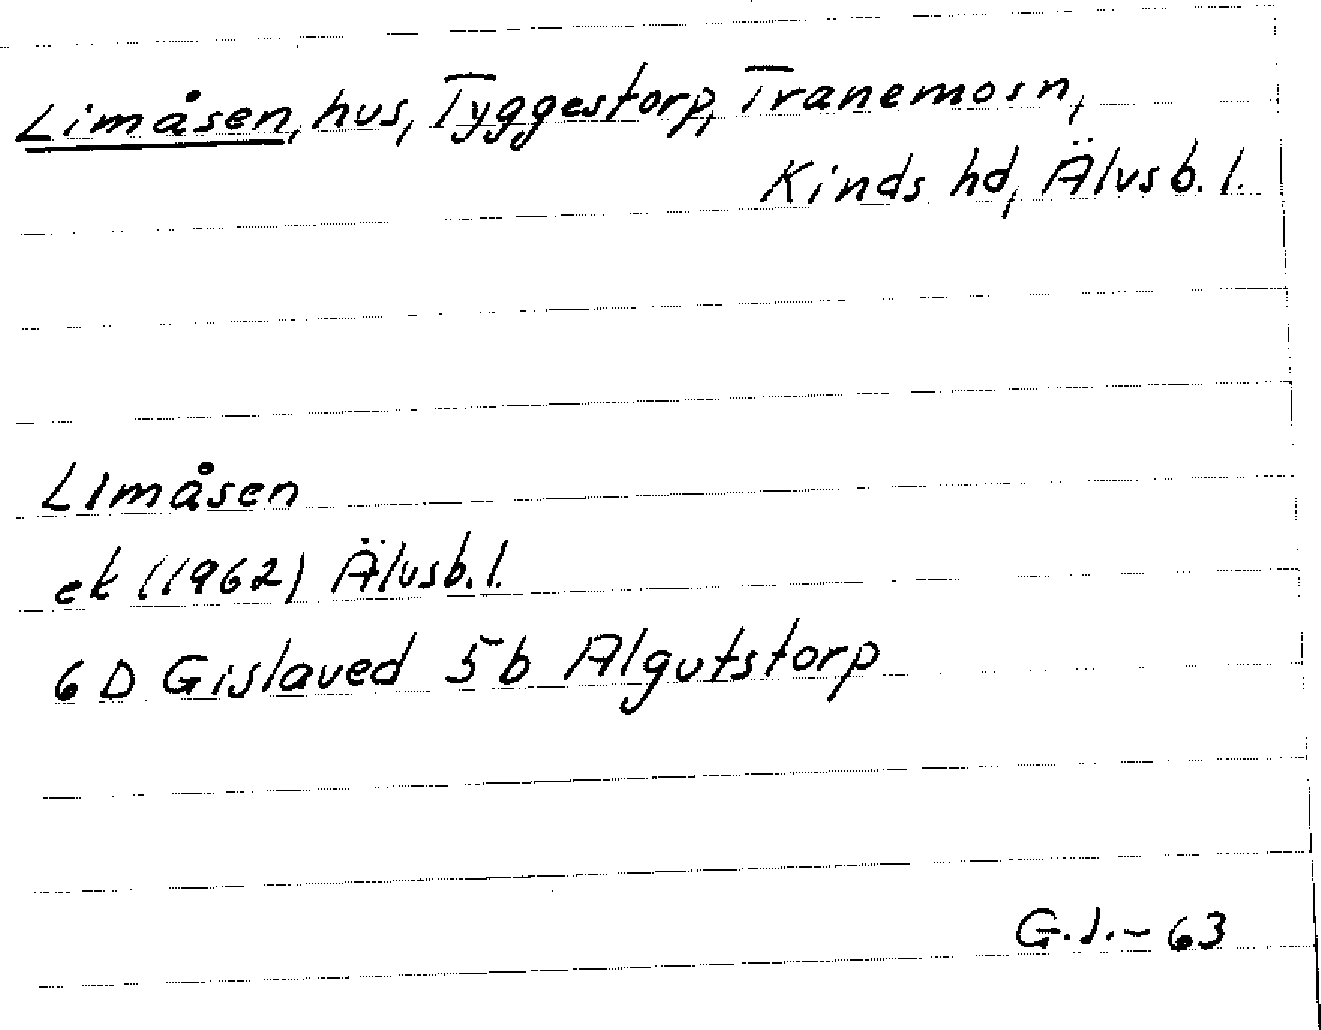 Limåsen, hus, Tyggestorp, Tranemo sn,
Kinds hd, Älvsb. l.
Limåsen
ek (1962) Älvsb. l.
6 D Gislaved 5b Algutstorp
G.J.- 63